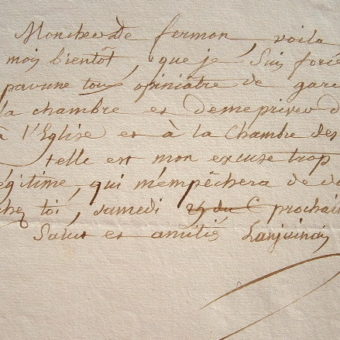 Mon cher de fermon, voila
mois bientôt, que je suis forcé
par une toux opiniatre de gar
la chambre et de me priver d
à l'Eglise et à la Chambre des
telle est mon excuse trop
égitime, qui m'empêchera de d
chez toi, samedi prochai
Salut et amitié Lanjuinais